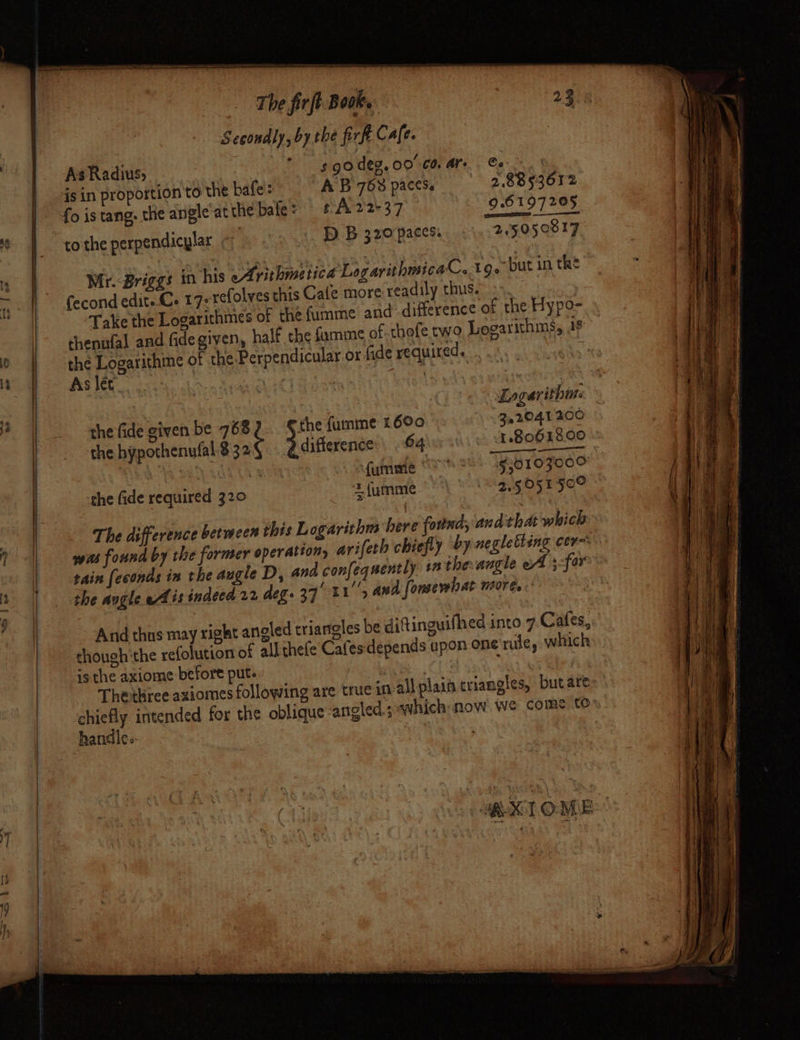 The firſt Booke. 23
Secondly, by the firſt Caſe.
As Radius, s 90 deg. 00' co. ar. C.
is in proportion to the baſe: A B 768 paces. 2.8853612
ſo is tang. the angle at the baſe: t A 22-37 9.6197205
to the perpendicular D B 320 paces. 2.5050817
Mr. Briggs in his Arithmetica Logarithmica C. 19. but in the
ſecond edit. C. 17. reſolves this Caſe more readily thus.
Take the Logarithmes of the ſumme and difference of the Hypo-
thenuſal and ſide given, half the ſumme of thoſe two Logarithms, is
the Logarithme of the Perpendicular or ſide required.
As let
Logarithm.
the ſide given be 768 the ſumme 1600 3.2041200
the hypothenuſal 832 difference 64 1.8061800
ſumme 5.0103000
the ſide required 320 ½ ſumme 2.5051500
The difference between this Logarithm here found, and that which
was found by the former operation, ariſeth chiefly by neglecting cer-
tain ſeconds in the angle D, and conſequently in the angle A; for
the angle A is indeed 22 deg. 37' 11'', and ſomewhat more.
And thus may right angled triangles be diſtinguiſhed into 7 Caſes,
though the reſolution of all theſe Caſes depends upon one rule, which
is the axiome before put.
The three axiomes following are true in all plain triangles, but are
chiefly intended for the oblique angled; which now we come to
handle.
AXIOME